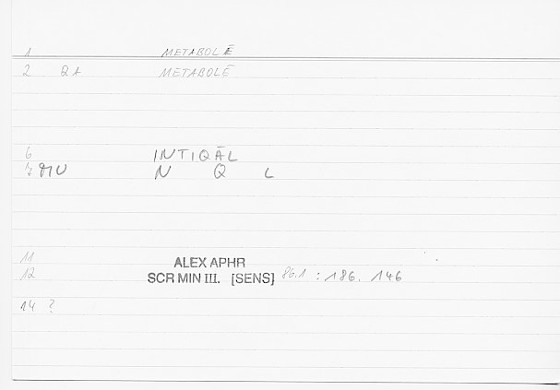 1 METABOLĒ
2 QA METABOLĒ
6 INTIQĀL
N Q L
11 ALEX APHR
12 SCR MIN III. [SENS] 86.1 : 186. 146
14 ?